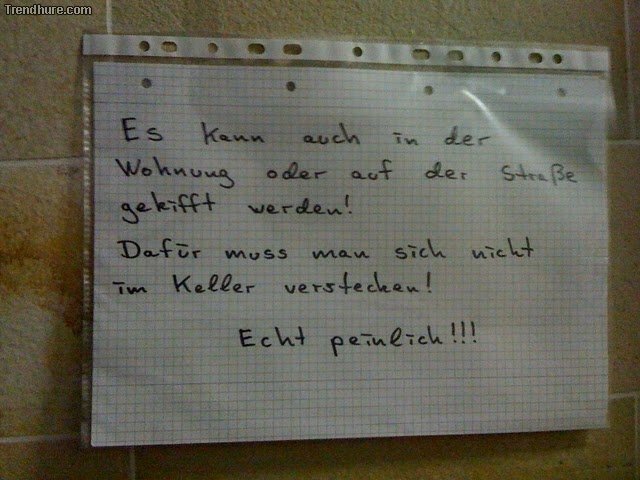 Trendhure.com
Es kann auch in der
Wohnung oder auf der Straße
gekifft werden!
Dafür muss man sich nicht
im Keller verstecken!
Echt peinlich!!!